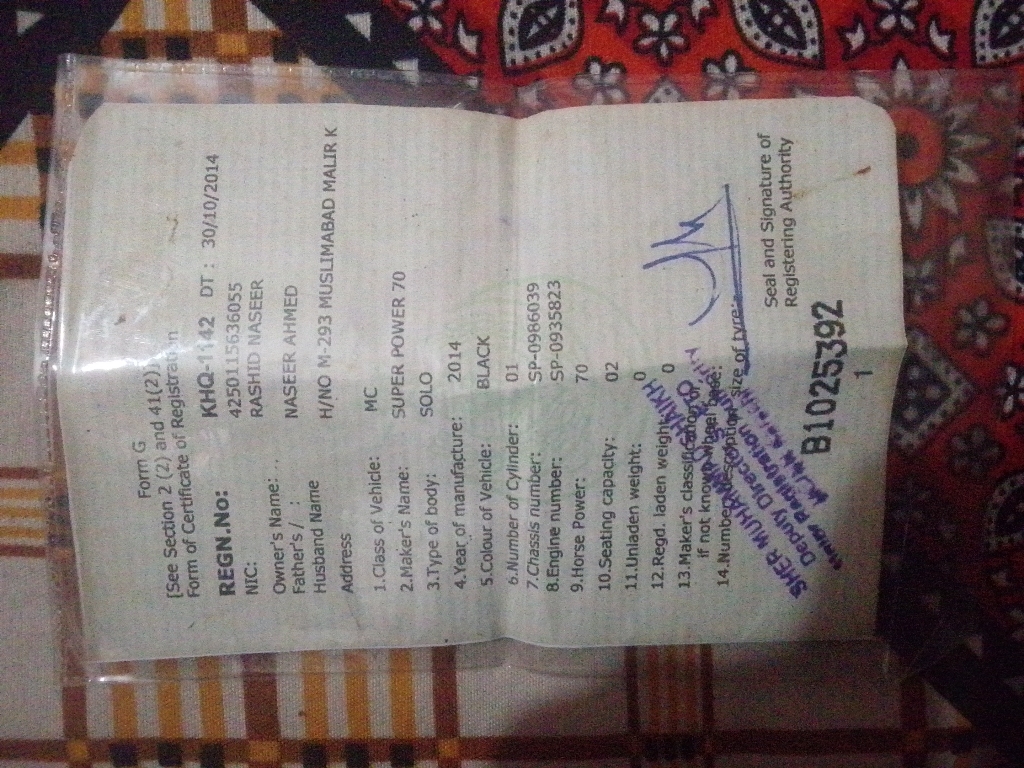 Form G
[See Section 2 (2) and 41(2)]
Form of Certificate of Registration
REGN.No: KHQ-1142 DT : 30/10/2014
NIC: 4250115636055
Owner's Name: RASHID NASEER
Father's / :
Husband Name NASEER AHMED
Address H/NO M-293 MUSLIMABAD MALIR K
1.Class of Vehicle: MC
2.Maker's Name: SUPER POWER 70
3.Type of body: SOLO
4.Year of manufacture: 2014
5.Colour of Vehicle: BLACK
6.Number of Cylinder: 01
7.Chassis number: SP-0986039
8.Engine number: SP-0935823
9.Horse Power: 70
10.Seating capacity: 02
11.Unladen weight: 0
12.Regd. laden weight: 0
13.Maker's classification
if not known wheel base:
14.Number description size of tyre:
SHER MUHAMMAD SHAIKH
Deputy Director
Motor Registration
Seal and Signature of
Registering Authority
B1025392
1